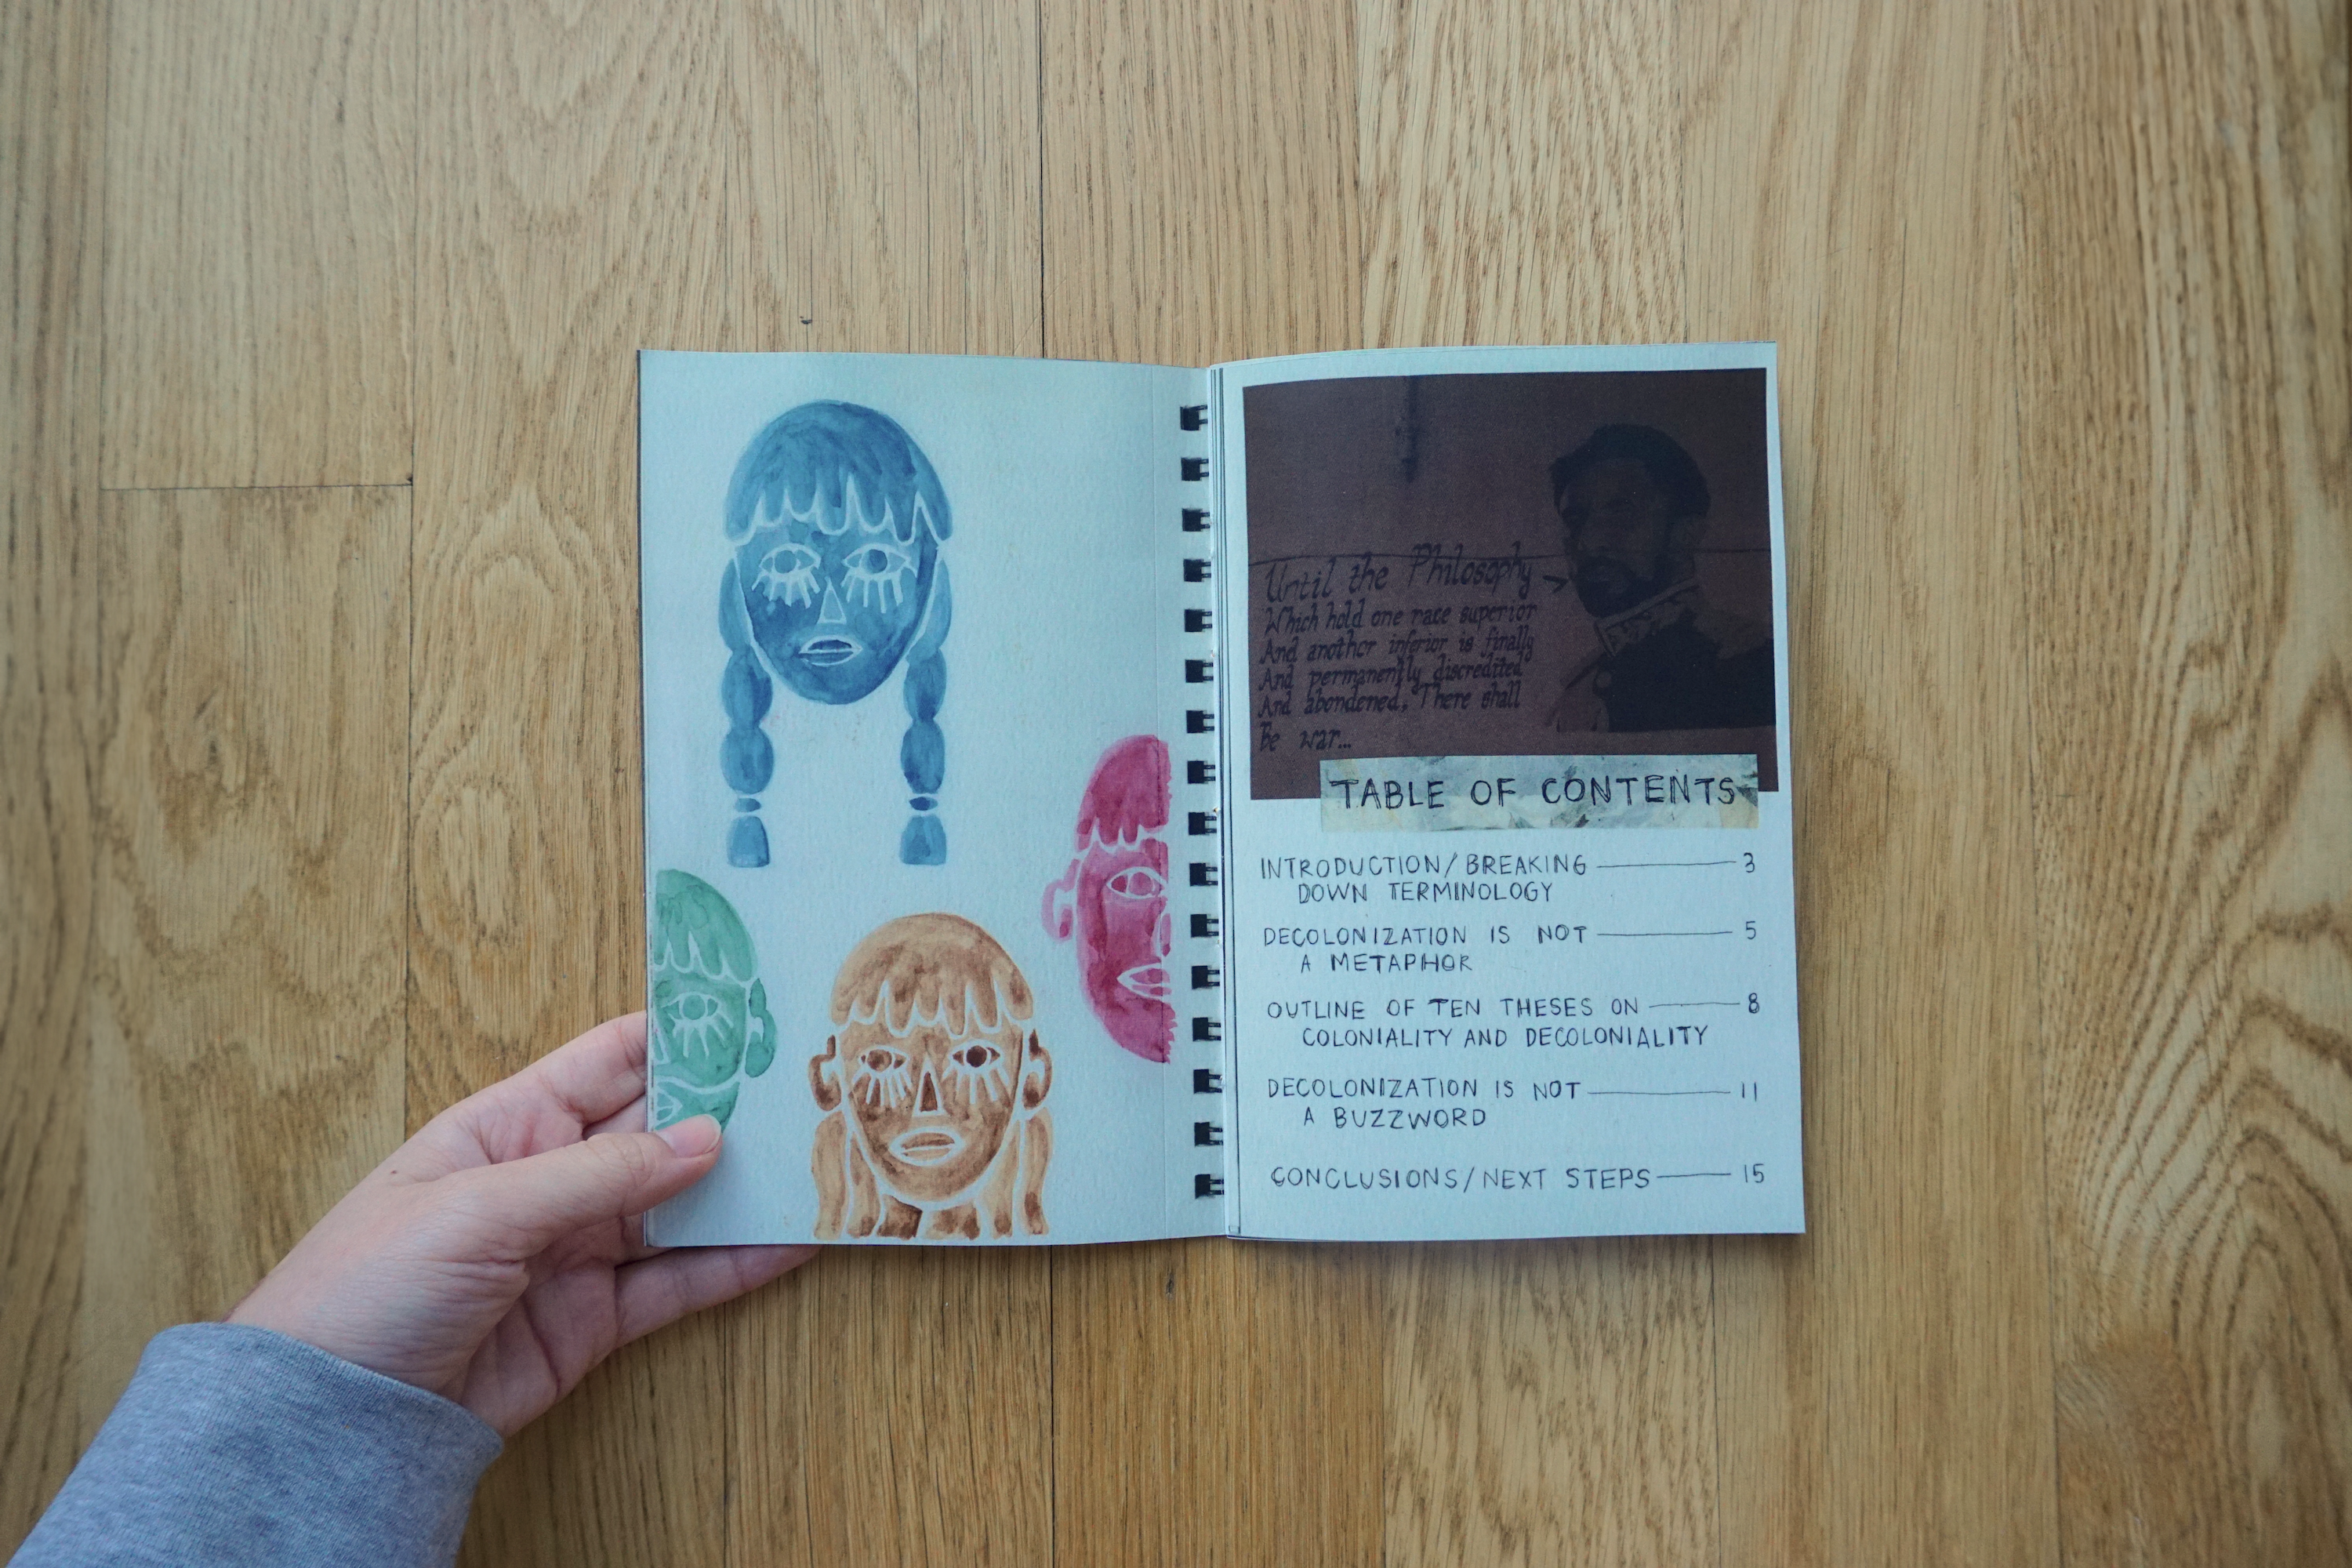 Until the Philosophy
Which hold one race superior
And another inferior is finally
And permanently discredited
And abondened, There shall
Be war...
TABLE OF CONTENTS
INTRODUCTION/BREAKING 3
DOWN TERMINOLOGY
DECOLONIZATION IS NOT 5
A METAPHOR
OUTLINE OF TEN THESES ON 8
COLONIALITY AND DECOLONIALITY
DECOLONIZATION IS NOT 11
A BUZZWORD
CONCLUSIONS/NEXT STEPS 15